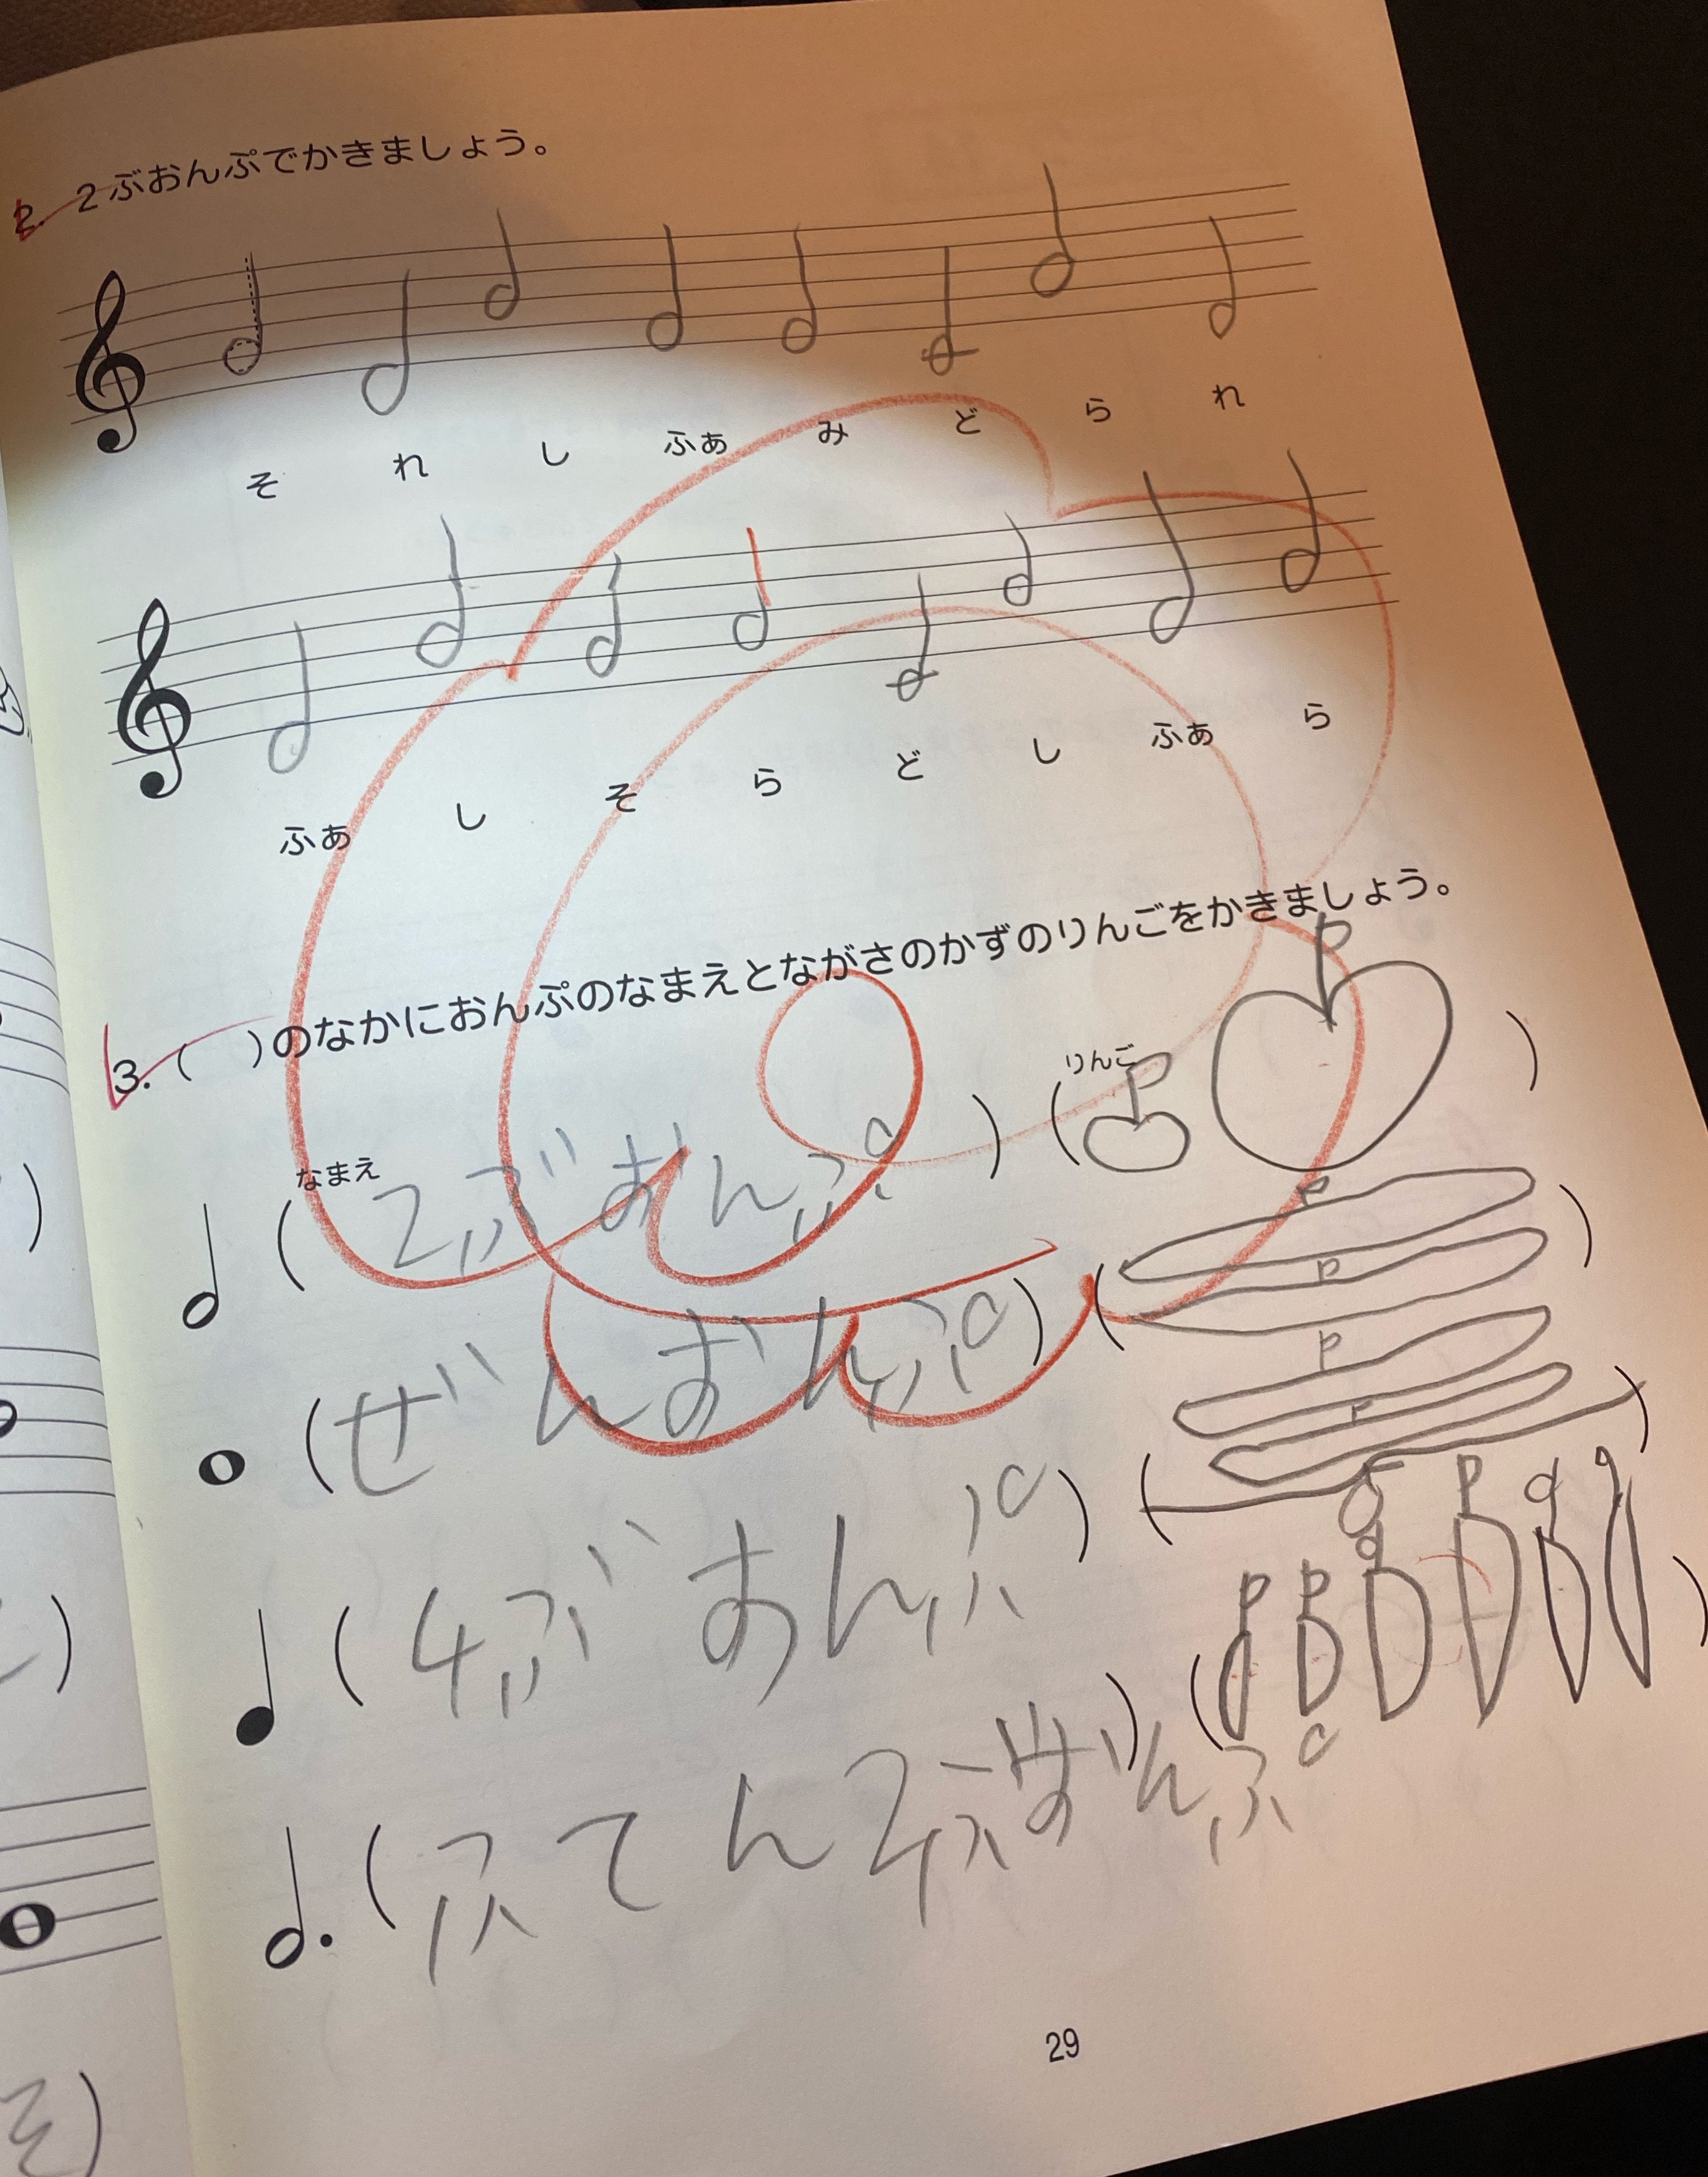 2. 2ぶおんぷでかきましょう。
そ れ し ふぁ み ど ら れ
ふぁ し そ ら ど し ふぁ ら
3. ( )のなかにおんぷのなまえとながさのかずのりんごをかきましょう。
なまえ りんご
( 2ぶおんぷ ) ( )
(ぜんおんぷ) ( )
( 4ぶおんぷ ) ( )
( ふてん2ぶおんぷ ) ( )
29
そ)